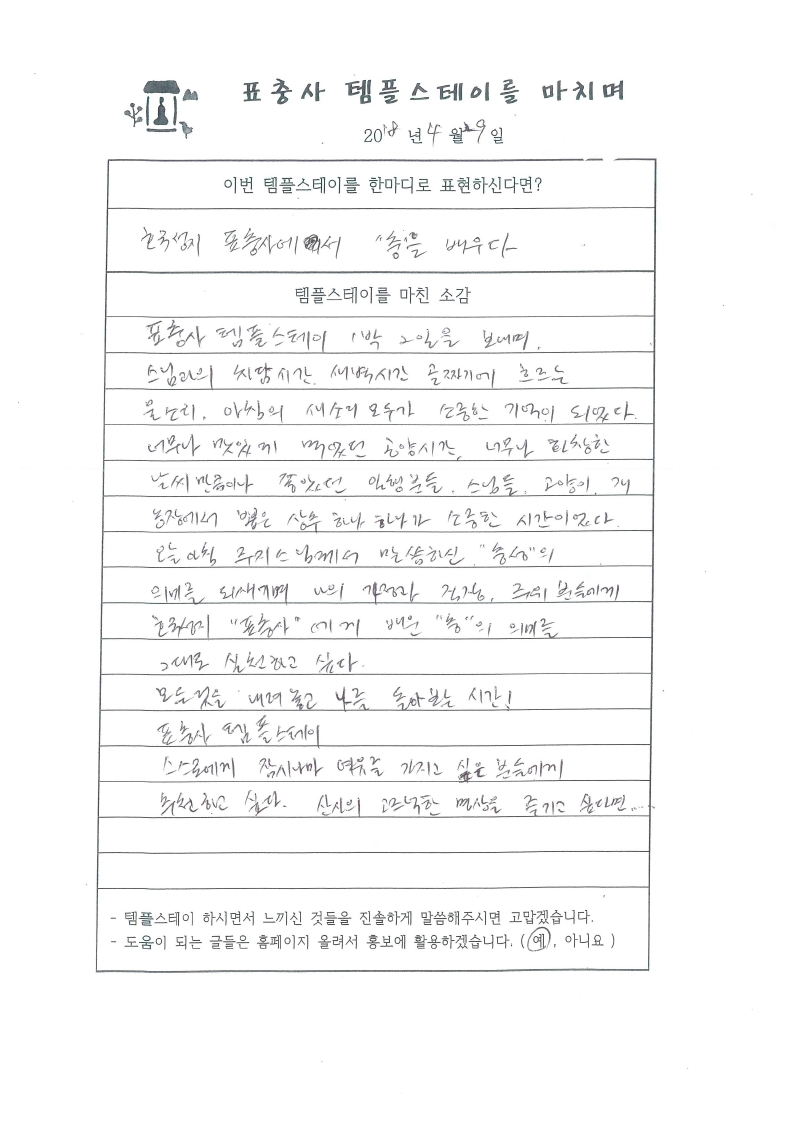 표충사 템플스테이를 마치며
2018 년 4 월 29 일
이번 템플스테이를 한마디로 표현하신다면?
호국성지 표충사에서 "충"을 배우다
템플스테이를 마친 소감
표충사 템플스테이 1박 2일을 보내며,
스님과의 차담시간, 새벽시간 골짜기에 흐르는
물소리, 아침의 새소리 모두가 소중한 기억이 되었다.
너무나 맛있게 먹었던 공양시간, 너무나 화창한
날씨 만큼이나 좋았던 일행분들, 스님들, 고양이, 개
농장에서 뽑은 상추 하나 하나가 소중한 시간이었다.
오늘 아침 주지스님께서 말씀하신 "충성"의
의미를 되새기며 나의 가정과 직장, 주위 분들에게
호국성지 "표충사"에게 배운 "충"의 의미를
그대로 실천하고 싶다.
모든것을 내려놓고 나를 돌아보는 시간!
표충사 템플스테이
스스로에게 잠시나마 여유를 가지고 싶은 분들에게
추천하고 싶다. 산사의 고즈넉한 명상을 즐기고 싶다면....
- 템플스테이 하시면서 느끼신 것들을 진솔하게 말씀해주시면 고맙겠습니다.
- 도움이 되는 글들은 홈페이지 올려서 홍보에 활용하겠습니다. ( 예, 아니요 )